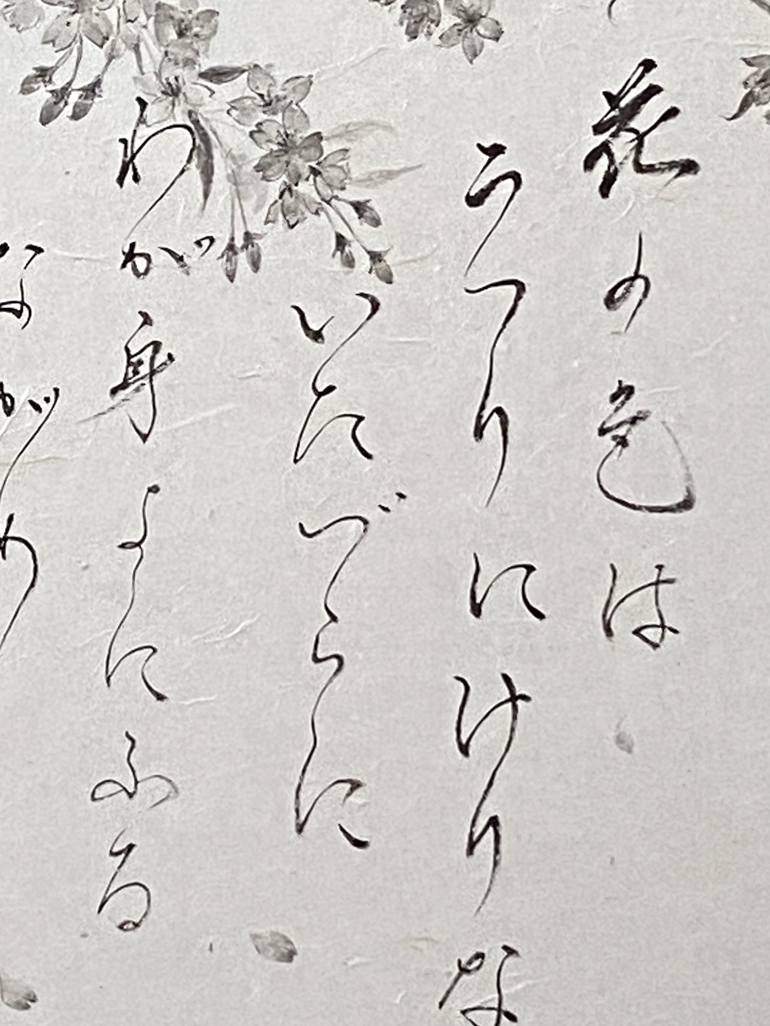 花の色は
うつりにけりな
いたづらに
わが身よにふる
ながめ